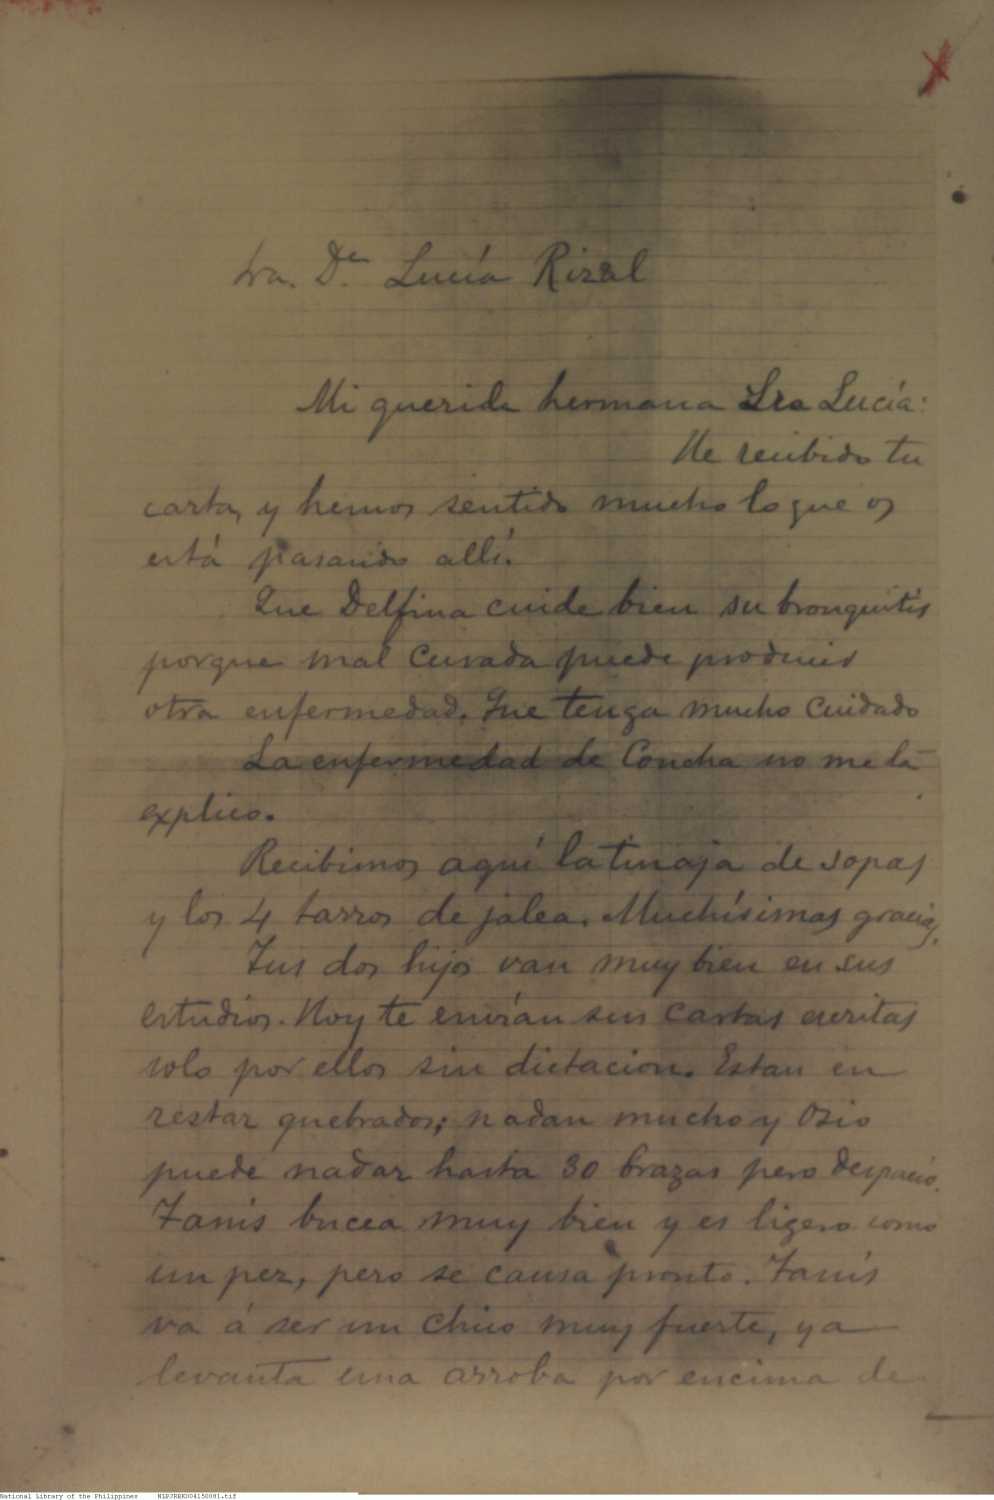 Sra. Dª Lucía Rizal
Mi querida hermana Sra Lucía:
He recibido tu
carta, y hemos sentido mucho lo que os
está pasando allí.
Que Delfina cuide bien su bronquitis
porque mal curada puede producir
otra enfermedad. Que tenga mucho cuidado
La enfermedad de Concha no me la
explico.
Recibimos aquí la tinaja de sopas
y los 4 tarros de jalea. Muchísimas gracias.
Tus dos hijos van muy bien en sus
estudios. Hoy te envían sus cartas escritas
solo por ellos sin dictacion. Estan en
restar quebrados; nadan mucho y Osio
puede nadar hasta 30 brazas pero despacio.
Tanis bucea muy bien y es ligero como
un pez, pero se causa pronto. Tanis
va á ser un chico muy fuerte, ya
levanta una arroba por encima de
National Library of the Philippines